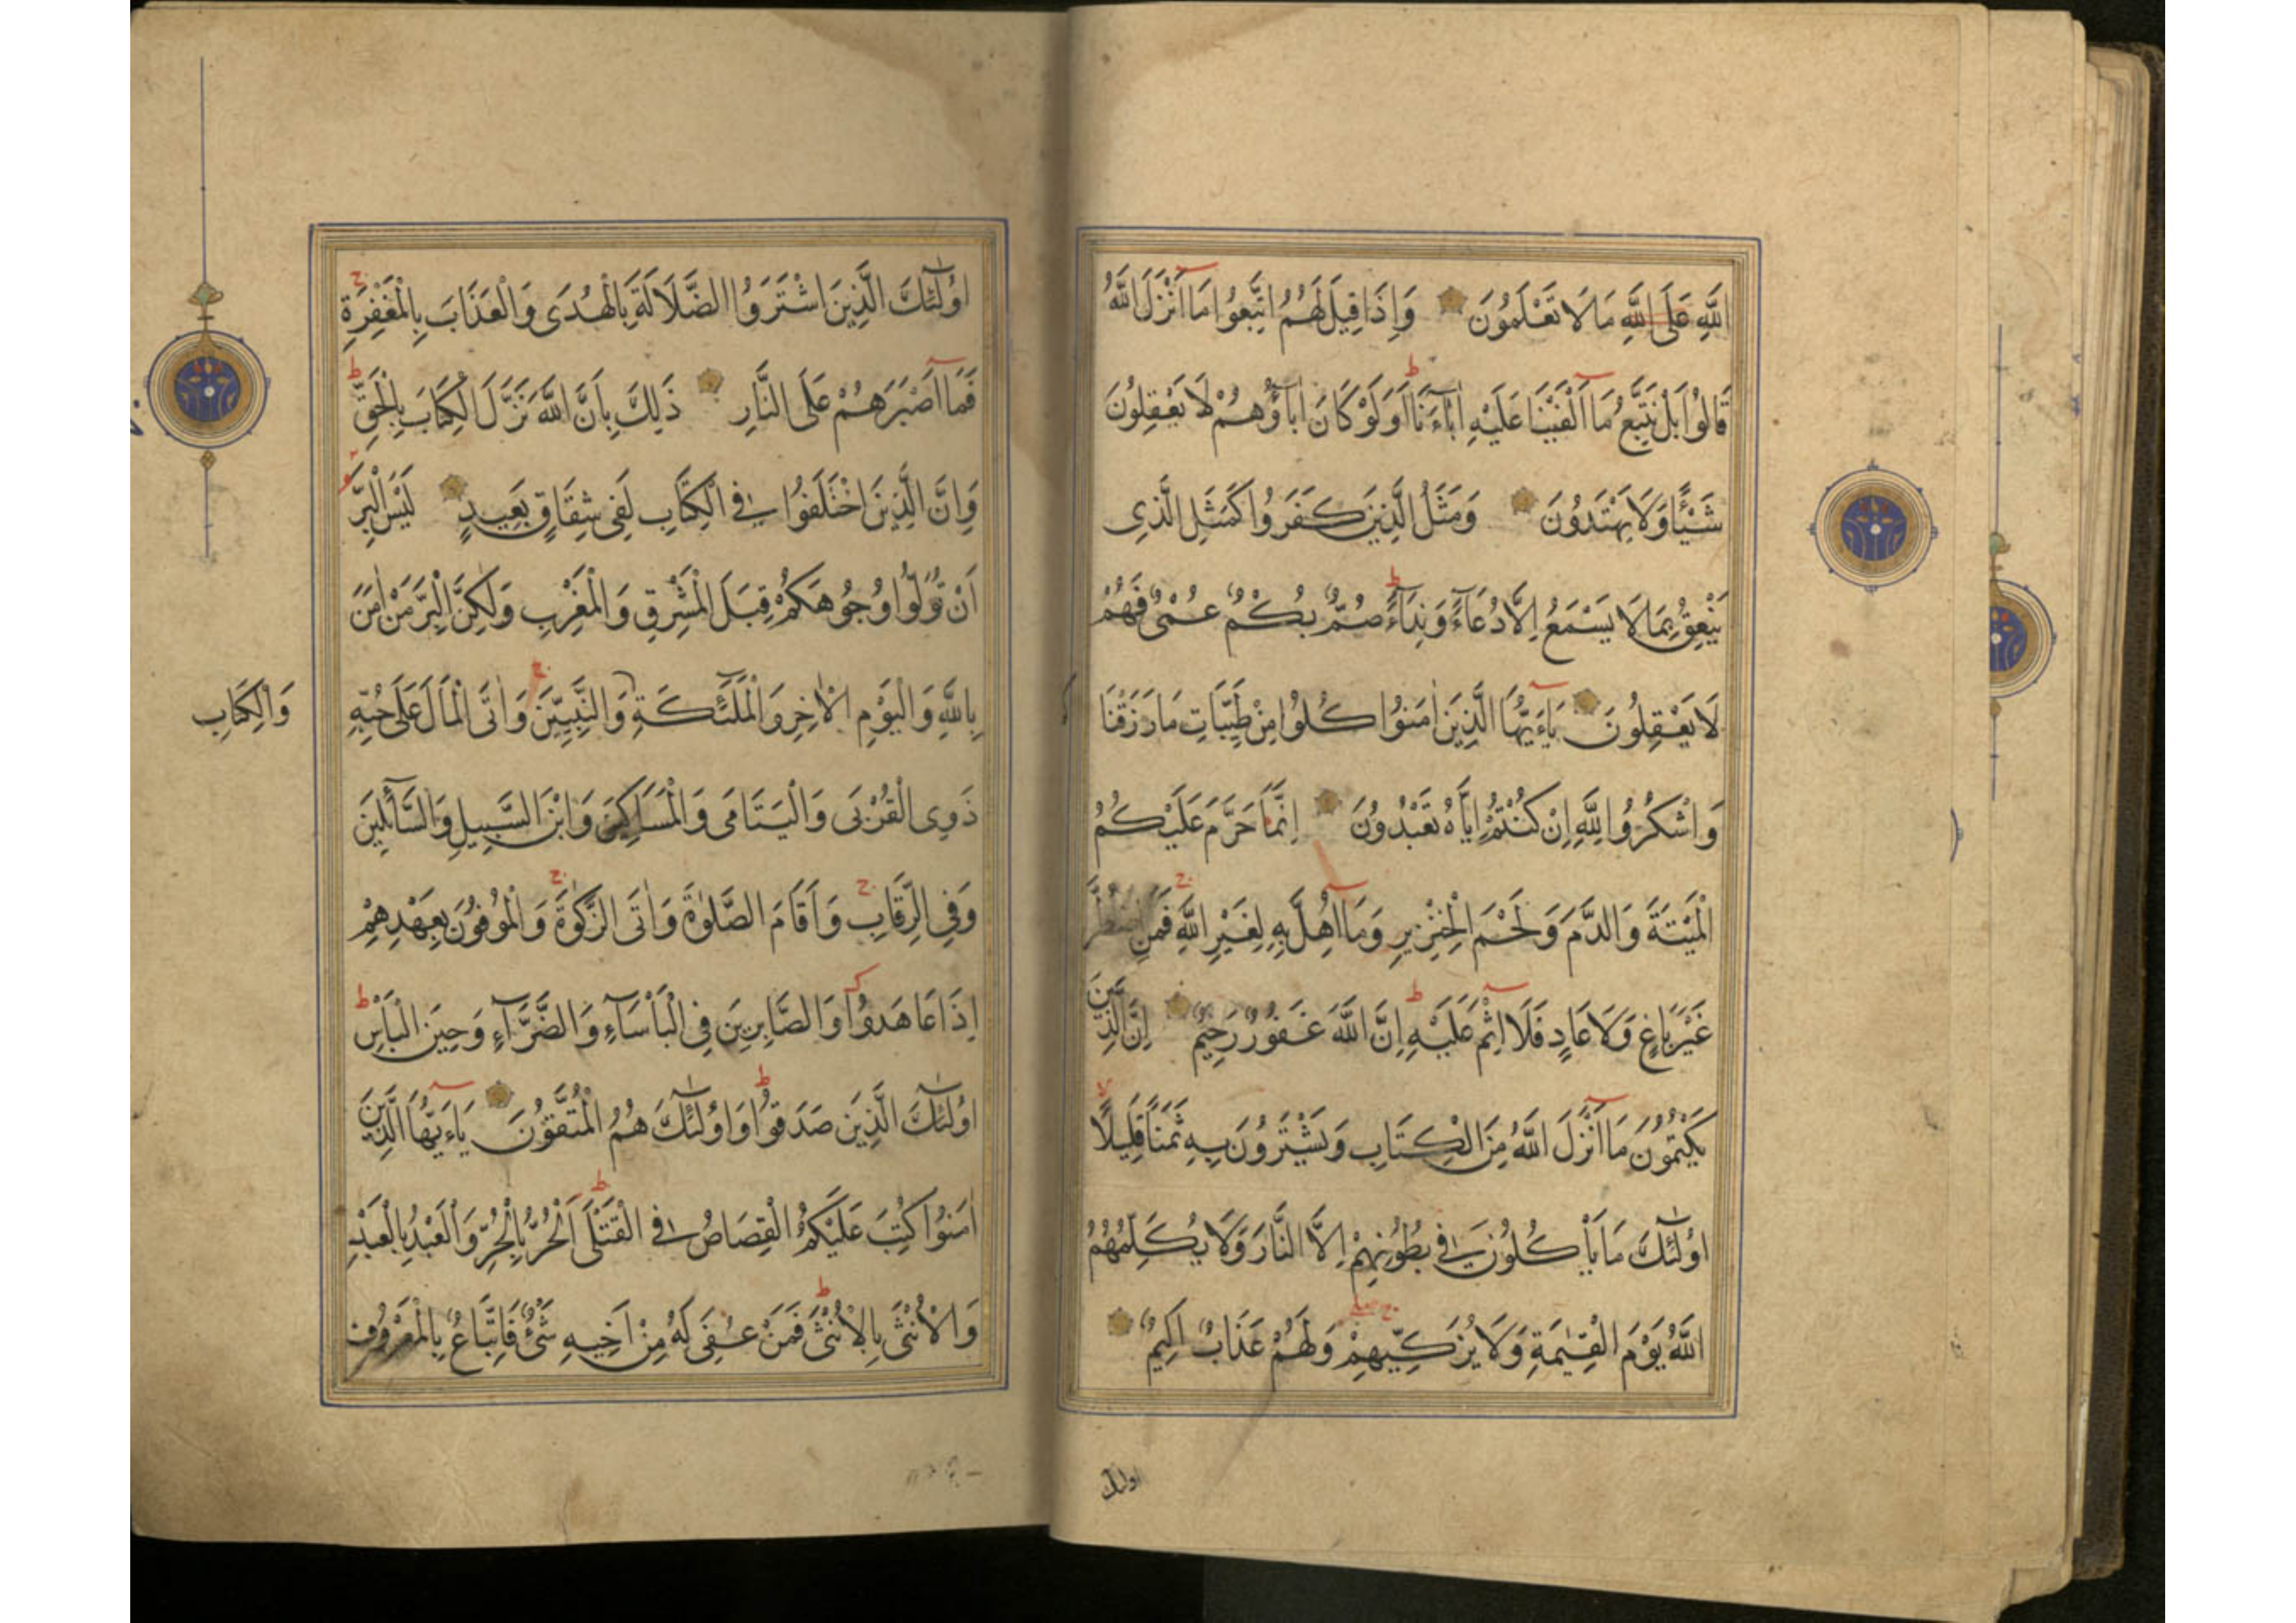 اللَّهِ عَلَى اللَّهِ مَا لَا تَعْلَمُونَ وَإِذَا قِيلَ لَهُمُ اتَّبِعُوا مَا أَنْزَلَ اللَّهُ
قَالُوا بَلْ نَتَّبِعُ مَا أَلْفَيْنَا عَلَيْهِ اٰبَآءَنَا أَوَلَوْ كَانَ اٰبَآؤُهُمْ لَا يَعْقِلُونَ
شَيْئًا وَلَا يَهْتَدُونَ وَمَثَلُ الَّذِينَ كَفَرُوا كَمَثَلِ الَّذِى
يَنْعِقُ بِمَا لَا يَسْمَعُ إِلَّا دُعَآءً وَنِدَآءً صُمٌّ بُكْمٌ عُمْىٌ فَهُمْ
لَا يَعْقِلُونَ يَاءَيُّهَا الَّذِينَ اٰمَنُوا كُلُوا مِنْ طَيِّبَاتِ مَا رَزَقْنَا
وَاشْكُرُوا لِلَّهِ إِنْ كُنْتُمْ إِيَّاهُ تَعْبُدُونَ إِنَّمَا حَرَّمَ عَلَيْكُمُ
الْمَيْتَةَ وَالدَّمَ وَلَحْمَ الْخِنْزِيرِ وَمَا أُهِلَّ بِهِ لِغَيْرِ اللَّهِ فَمَنِ اضْطُرَّ
غَيْرَ بَاغٍ وَلَا عَادٍ فَلَا إِثْمَ عَلَيْهِ إِنَّ اللَّهَ غَفُورٌ رَحِيمٌ إِنَّ الَّذِينَ
يَكْتُمُونَ مَا أَنْزَلَ اللَّهُ مِنَ الْكِتَابِ وَيَشْتَرُونَ بِهِ ثَمَنًا قَلِيلًا
أُولٰئِكَ مَا يَأْكُلُونَ فِي بُطُونِهِمْ إِلَّا النَّارَ وَلَا يُكَلِّمُهُمُ
اللَّهُ يَوْمَ الْقِيٰمَةِ وَلَا يُزَكِّيهِمْ وَلَهُمْ عَذَابٌ أَلِيمٌ
اولئك
أُولٰئِكَ الَّذِينَ اشْتَرَوُا الضَّلَالَةَ بِالْهُدَى وَالْعَذَابَ بِالْمَغْفِرَةِ
فَمَا أَصْبَرَهُمْ عَلَى النَّارِ ذَلِكَ بِأَنَّ اللَّهَ نَزَّلَ الْكِتَابَ بِالْحَقِّ
وَإِنَّ الَّذِينَ اخْتَلَفُوا فِي الْكِتَابِ لَفِى شِقَاقٍ بَعِيدٍ لَيْسَ الْبِرَّ
أَنْ تُوَلُّوا وُجُوهَكُمْ قِبَلَ الْمَشْرِقِ وَالْمَغْرِبِ وَلٰكِنَّ الْبِرَّ مَنْ اٰمَنَ
بِاللَّهِ وَالْيَوْمِ الْاٰخِرِ وَالْمَلٰئِكَةِ وَالنَّبِيِّينَ وَاٰتَى الْمَالَ عَلَى حُبِّهِ
وَالْكِتَابِ
ذَوِى الْقُرْبَى وَالْيَتَامَى وَالْمَسَاكِينَ وَابْنَ السَّبِيلِ وَالسَّآئِلِينَ
وَفِي الرِّقَابِ وَأَقَامَ الصَّلٰوةَ وَاٰتَى الزَّكٰوةَ وَالْمُوفُونَ بِعَهْدِهِمْ
إِذَا عَاهَدُوا وَالصَّابِرِينَ فِي الْبَأْسَآءِ وَالضَّرَّآءِ وَحِينَ الْبَأْسِ
أُولٰئِكَ الَّذِينَ صَدَقُوا وَأُولٰئِكَ هُمُ الْمُتَّقُونَ يَاءَيُّهَا الَّذِينَ
اٰمَنُوا كُتِبَ عَلَيْكُمُ الْقِصَاصُ فِي الْقَتْلَى اَلْحُرُّ بِالْحُرِّ وَالْعَبْدُ بِالْعَبْدِ
وَالْأُنْثَى بِالْأُنْثَى فَمَنْ عُفِىَ لَهُ مِنْ أَخِيهِ شَىْءٌ فَاتِّبَاعٌ بِالْمَعْرُوفِ